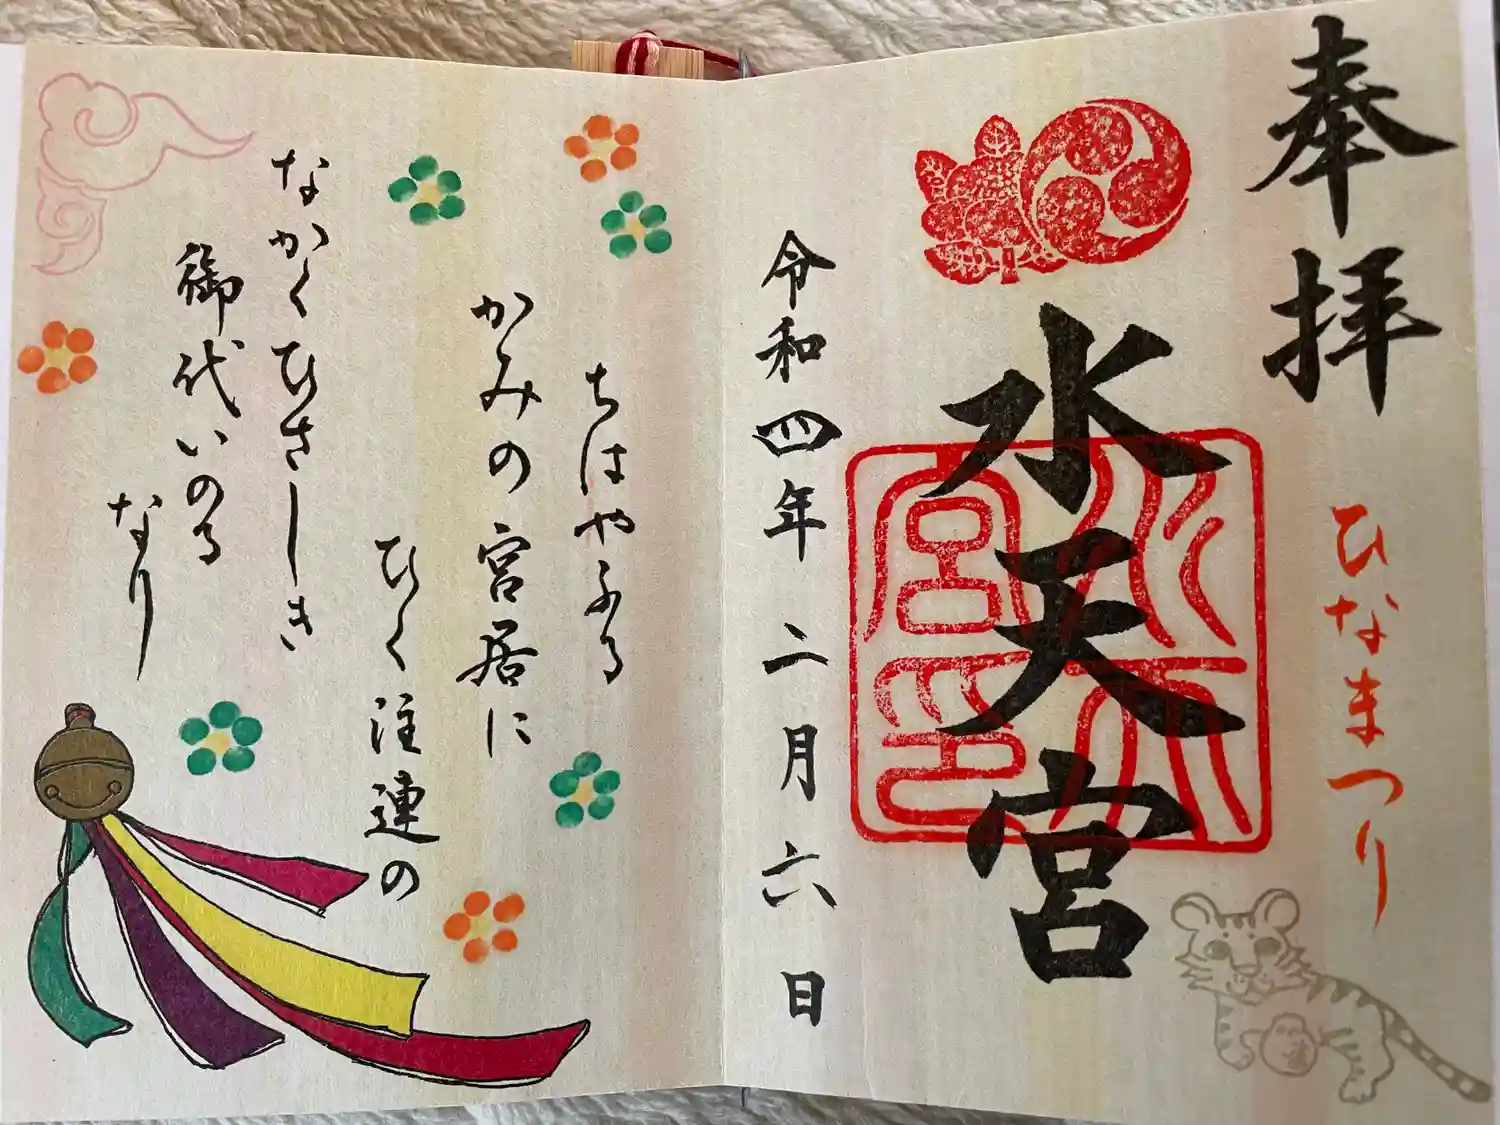 奉拝
ひなまつり
水天宮
水天宮印
令和四年二月六日
ちはやふる
かみの宮居に
ひく注連の
なかくひさしき
御代いのる
なり